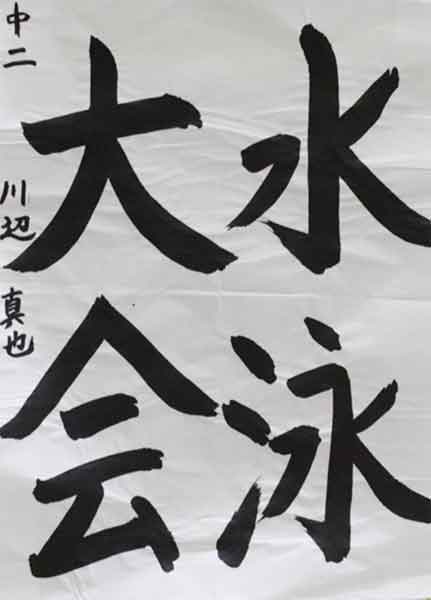 水泳
大会
中二 川辺真也